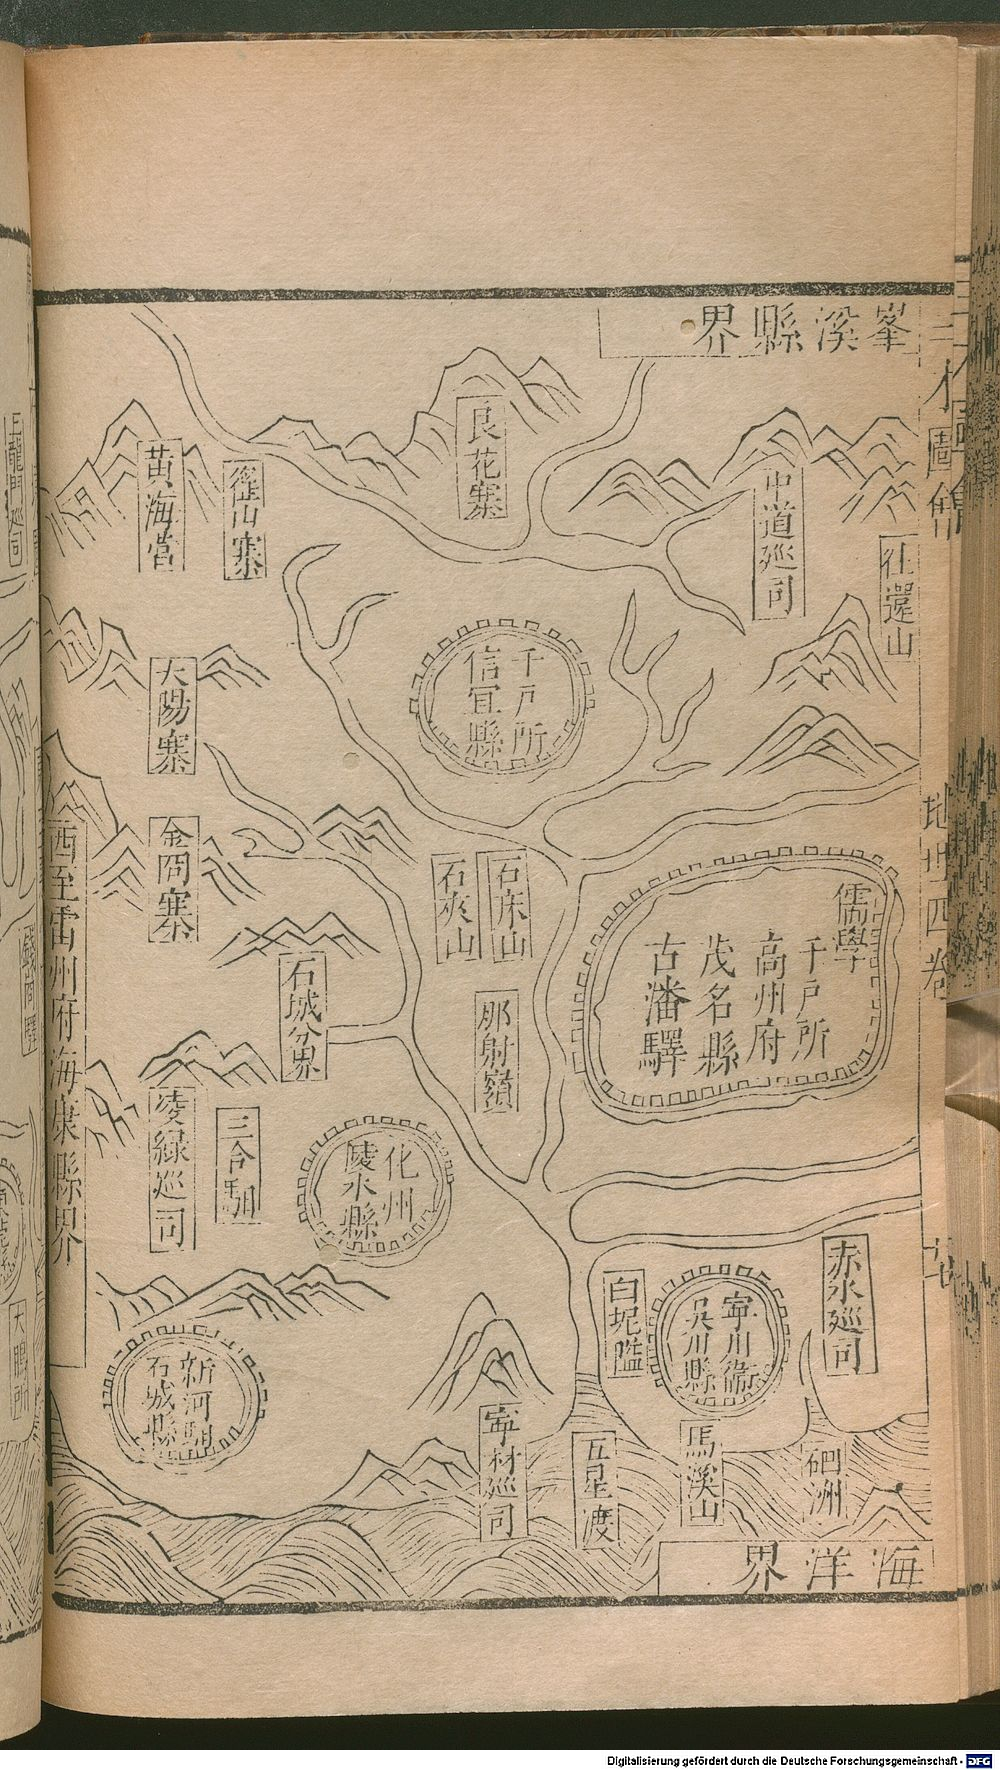 岑溪縣界
三才圖會
地廿四卷
往還山
中道巡司
良花寨
黃海營
大陽寨
千戶所
信宜縣
金岡寨
石床山
石夾山
那射嶺
石城分界
儒學
千戶所
高州府
茂名縣
古潘驛
西至雷州府海康縣界
凌綠巡司
三合馹
化州
陵水縣
赤水巡司
寧川衛
吳川縣
白坭隘
新河馹
石城縣
寧村巡司
五星渡
馬溪山
硇洲
海洋界
Digitalisierung gefördert durch die Deutsche Forschungsgemeinschaft - DFG